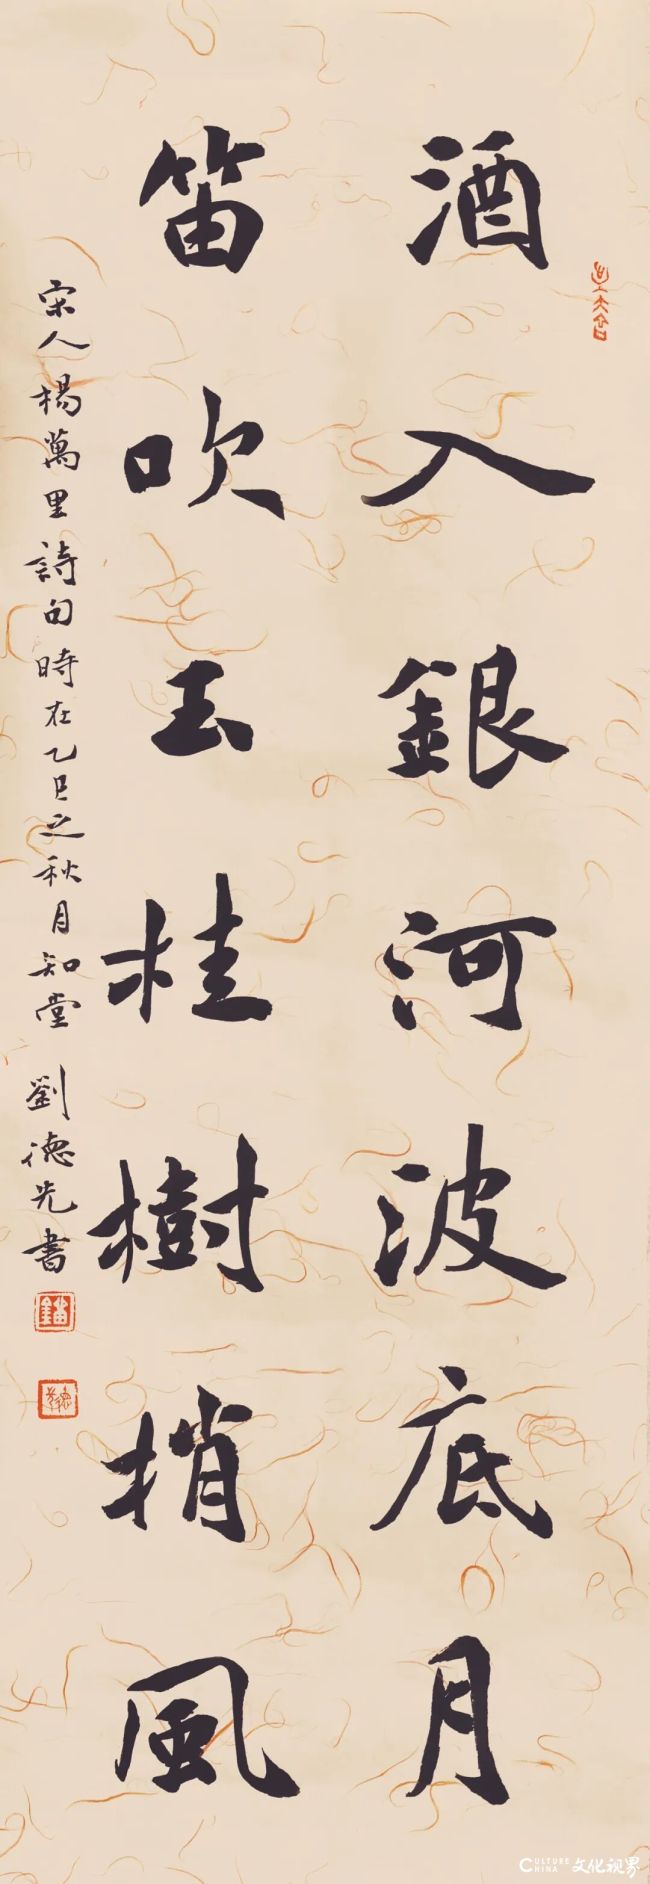 酒入銀河波底月
笛吹玉桂樹梢風
宋人楊萬里詩句時在乙巳之秋月知堂劉德先書
CULTURE CHINA 文化视界